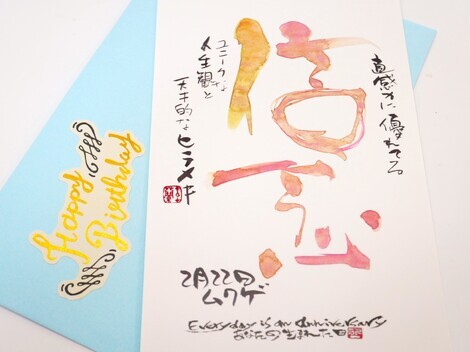 直感力に優れてる
信念
ユニークな
人生観と
天才的な
ヒラメキ
2月22日
ムクゲ
Everyday is an anniversary
あなたの生まれた日
Happy
Birthday